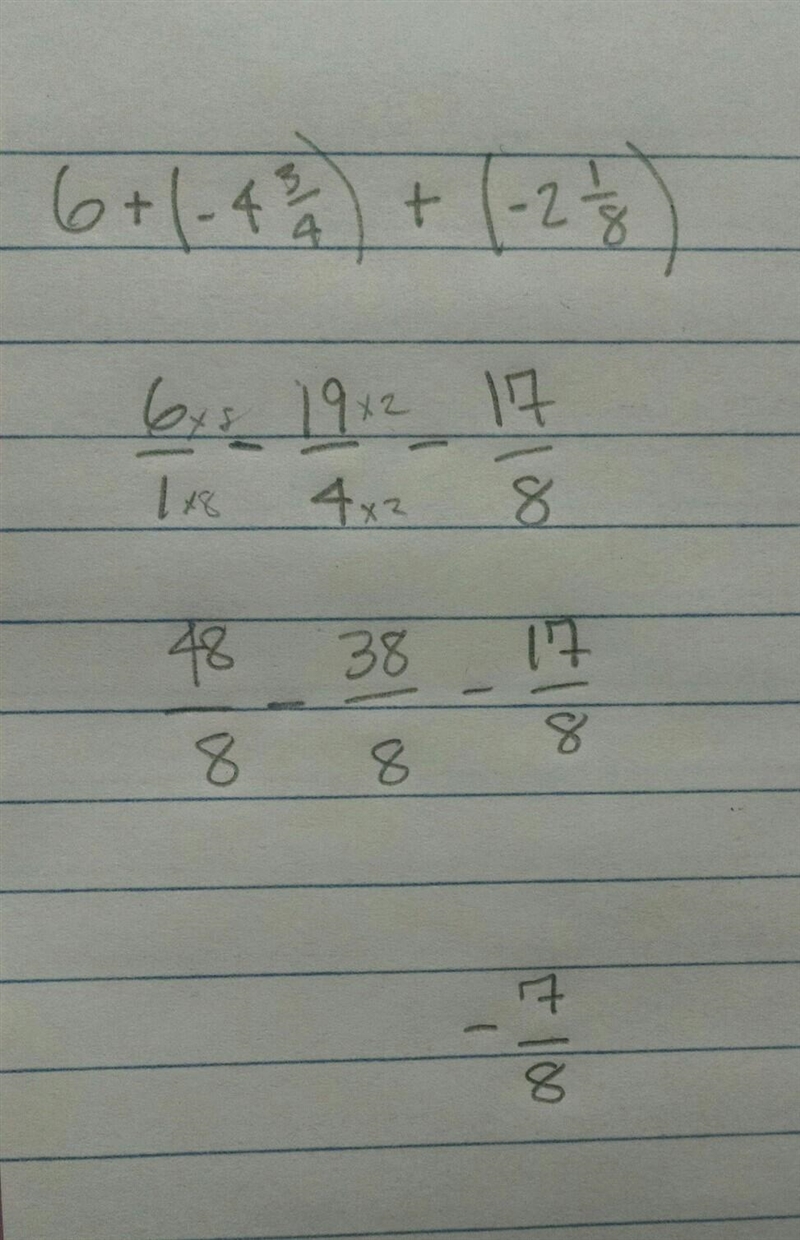 6 + (-4 3/4) + (-2 1/8)
6×8/1×8 - 19×2/4×2 - 17/8
48/8 - 38/8 - 17/8
- 7/8